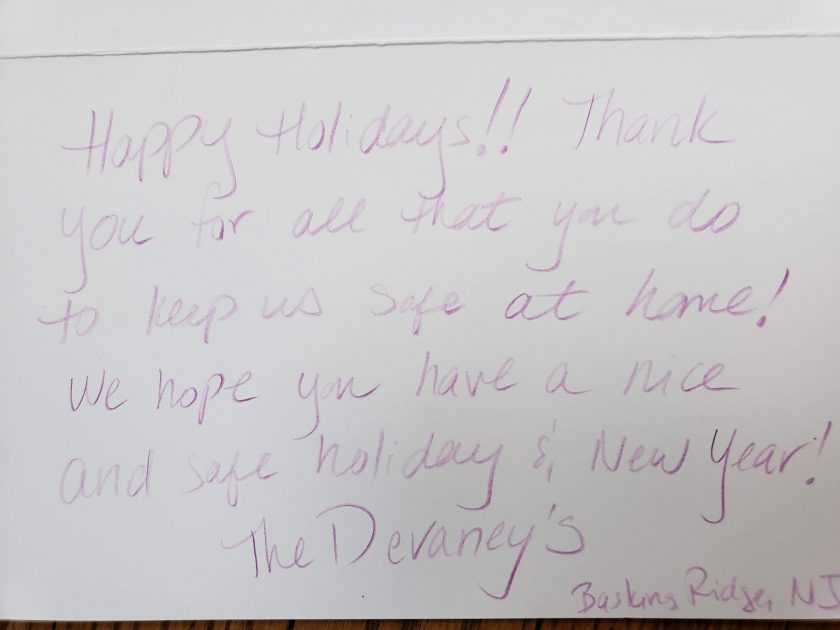 Happy Holidays!! Thank
you for all that you do
to keep us safe at home!
We hope you have a nice
and safe holiday & New Year!
The Devaney's
Basking Ridge, NJ